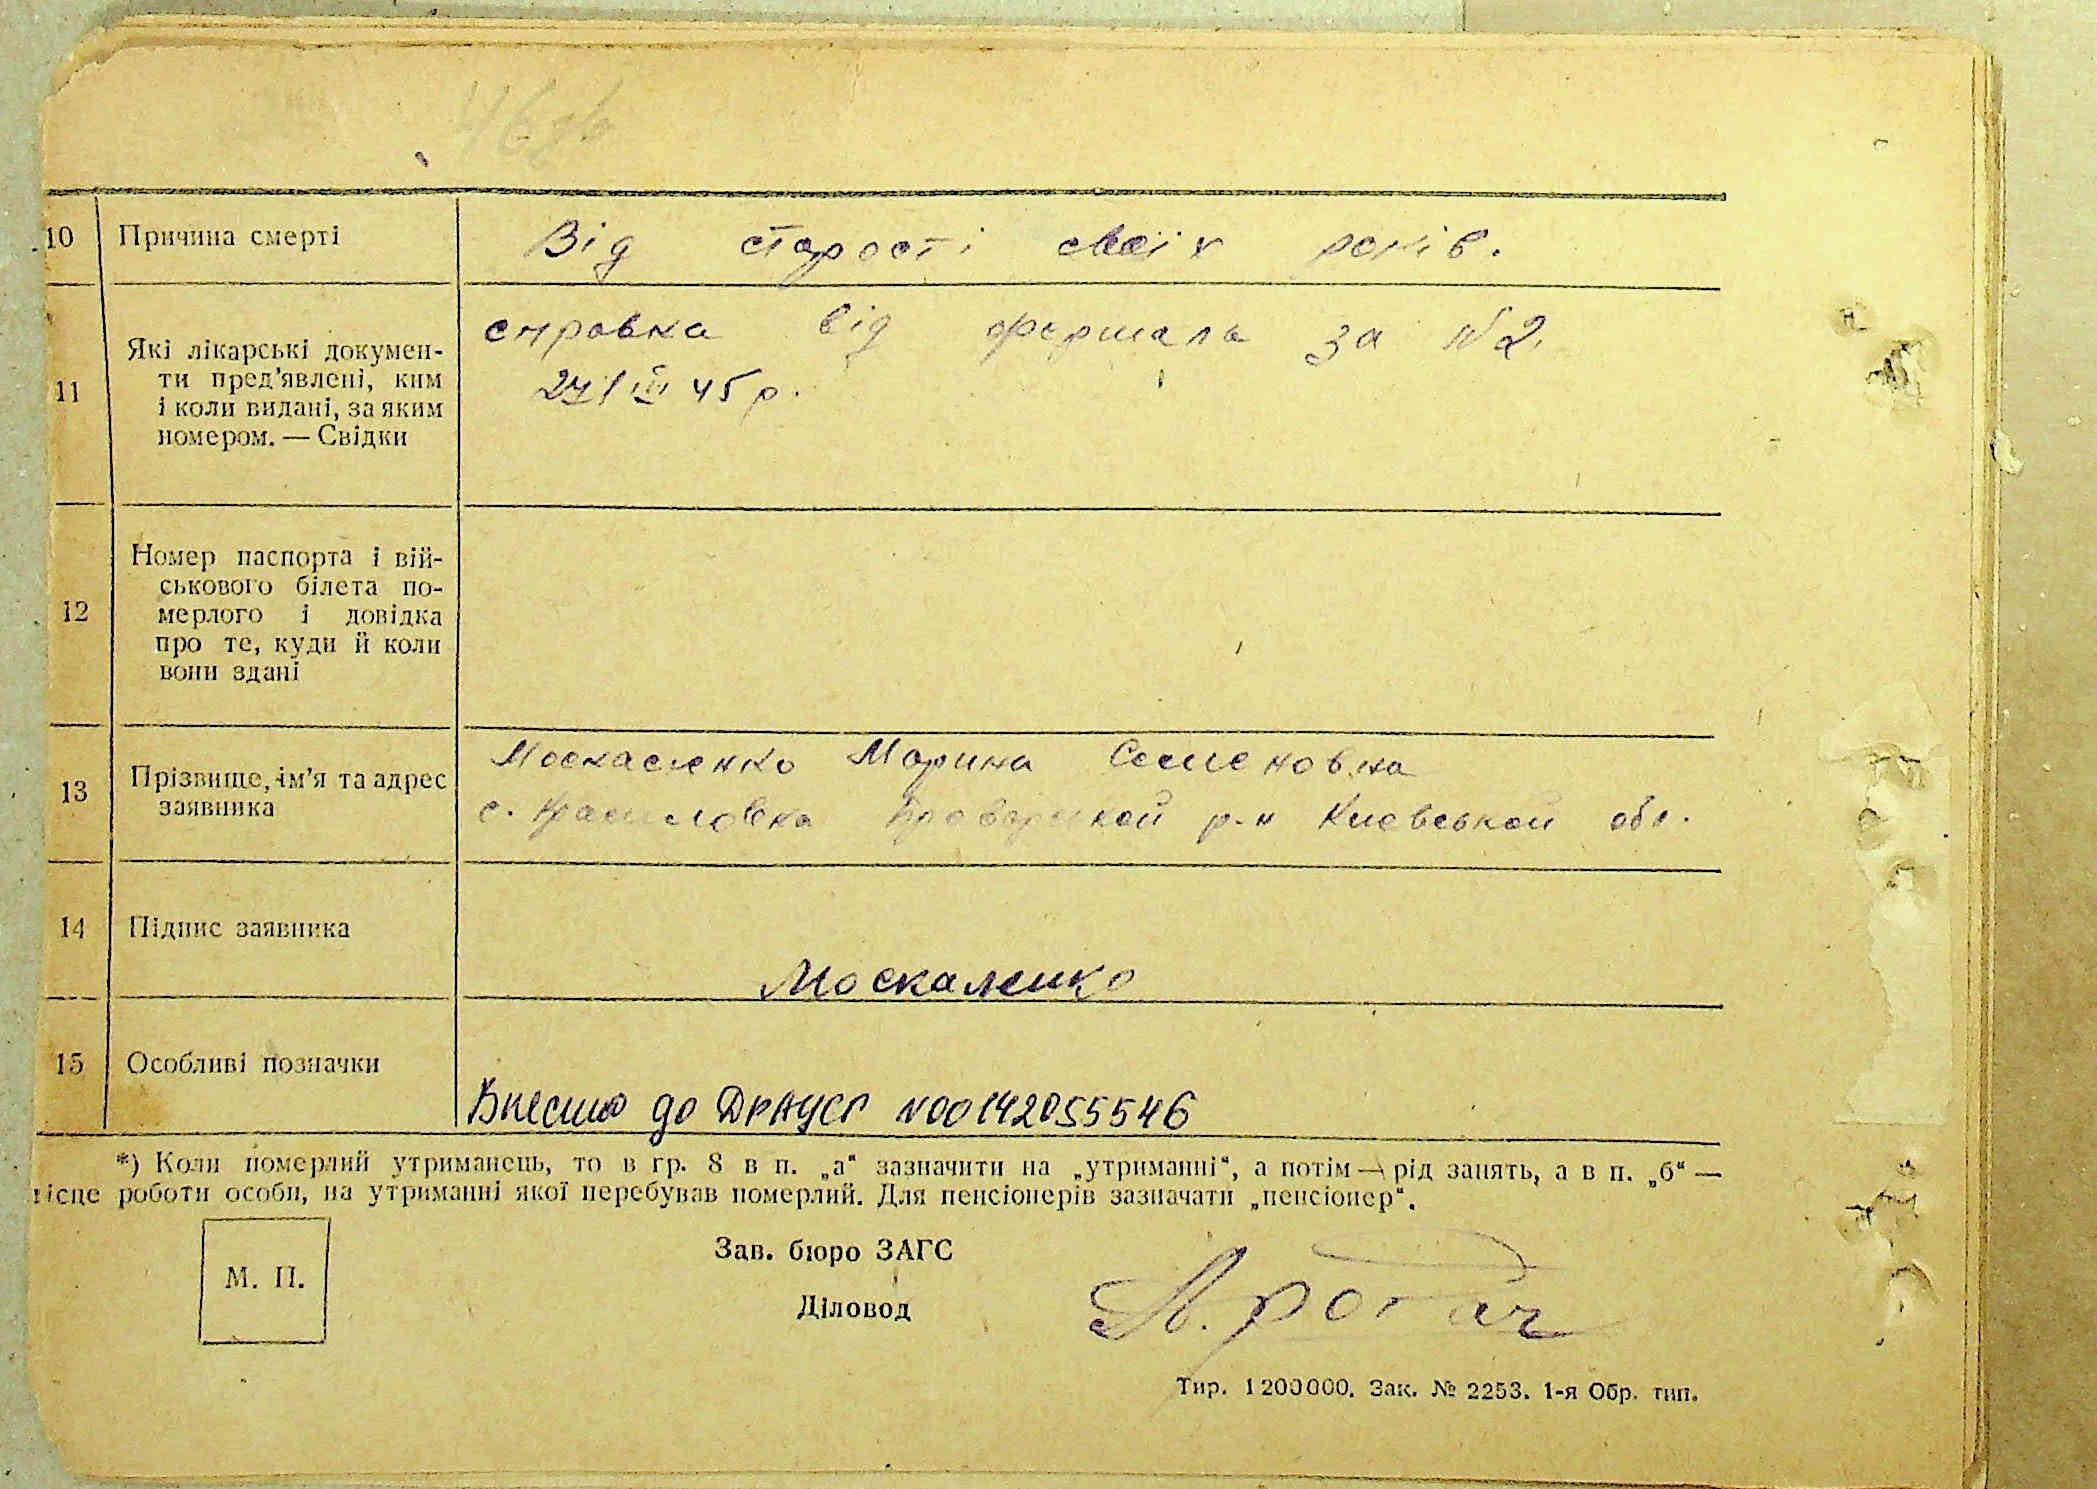 10 Причина смерті Від старості своїх років.
11 Які лікарські докумен-
ти пред'явлені, ким
і коли видані, за яким
номером. — Свідки
справка від фершала за №2.
27/III 45 р.
12 Номер паспорта і вій-
ськового білета по-
мерлого і довідка
про те, куди й коли
вони здані
13 Прізвище, ім'я та адрес
заявника
Москаленко Марина Семеновна
с. Красиловка Броварской р-н Киевськой обл.
14 Підпис заявника
Москаленко
15 Особливі позначки
Внесено до ДРАЦСГ №00142055546
*) Коли померлий утриманець, то в гр. 8 в п. „а“ зазначити на „утриманні“, а потім — рід занять, а в п. „б“ —
місце роботи особи, на утриманні якої перебував померлий. Для пенсіонерів зазначати „пенсіонер“.
М. П.
Зав. бюро ЗАГС
Діловод
Тир. 1200000. Зак. № 2253. 1-я Обр. тип.